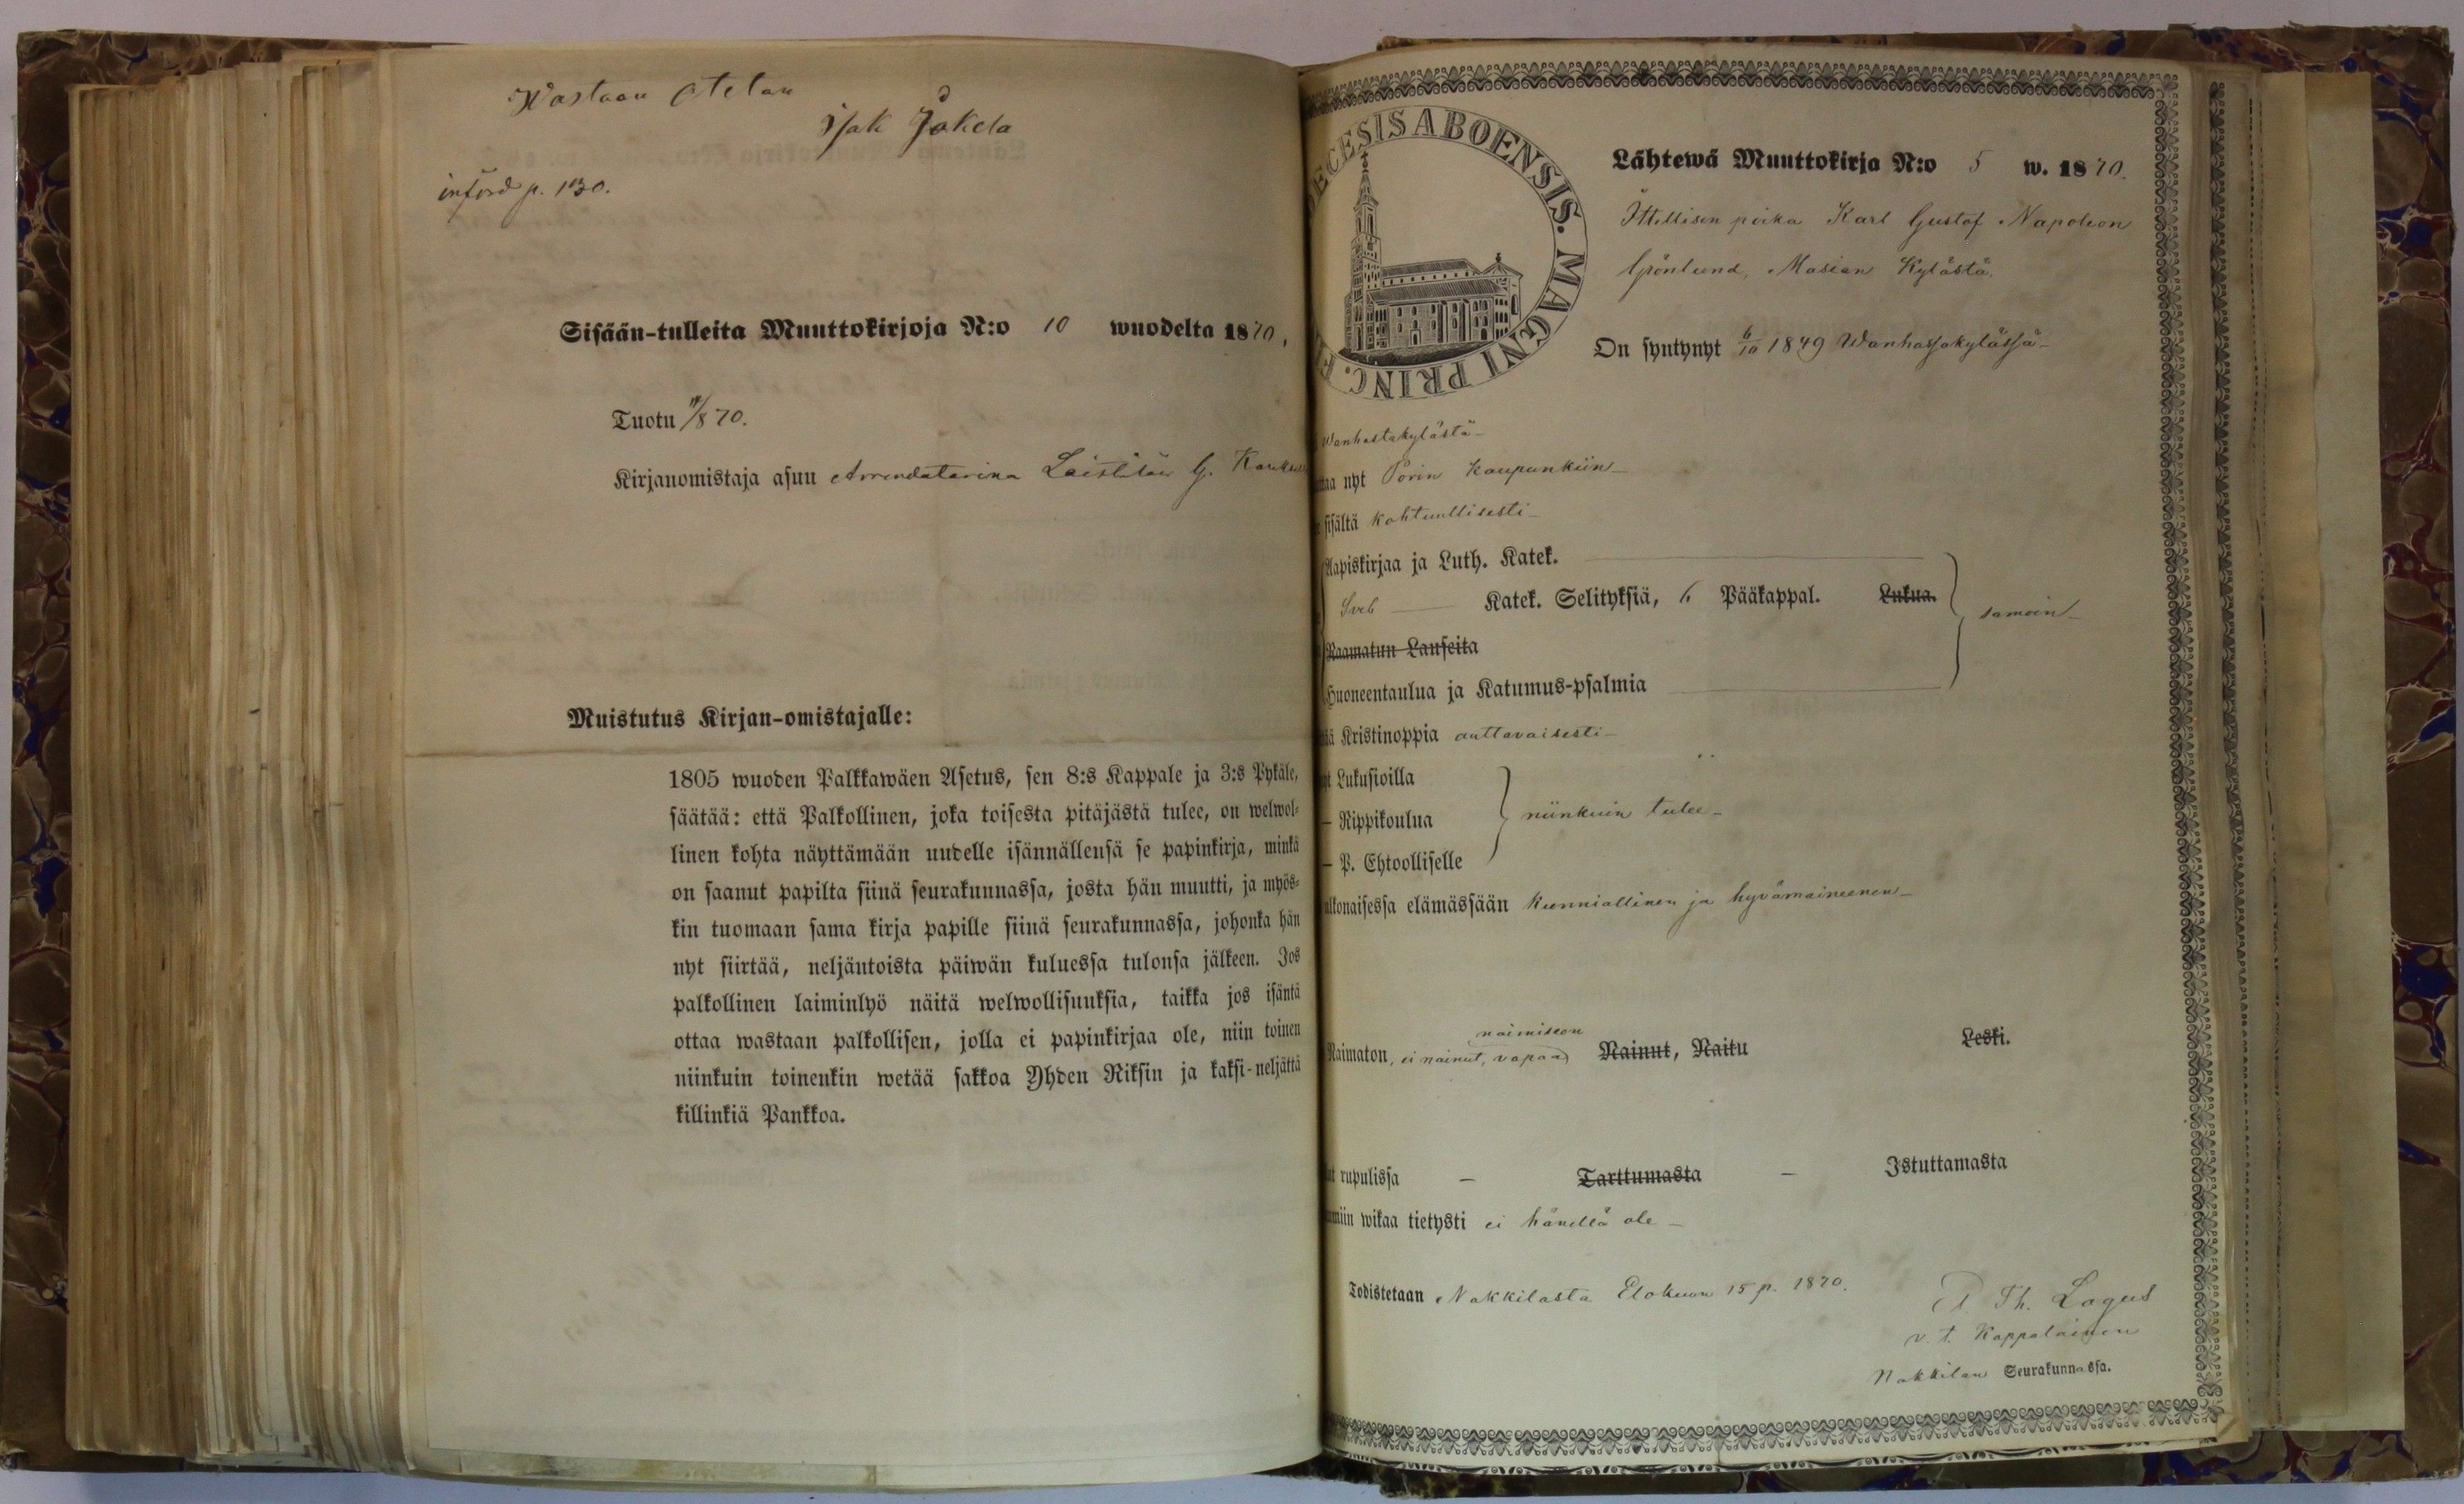 Wastaan otetan
Isak Jokela
införd p. 130.
Sisään-tulleita Muuttokirjoja N:o 10 wuodelta 1870,
Tuotu /8 70.
Kirjanomistaja asuu Arrendatorina
Muistutus Kirjan-omistajalle:
1805 wuoden Palkkawäen Asetus, sen 8:s Kappale ja 3:s Pykäle,
säätää: että Palkollinen, joka toisesta pitäjästä tulee, on welwol-
linen kohta näyttämään uudelle isännällensä se papinkirja, minkä
on saanut papilta siinä seurakunnassa, josta hän muutti, ja myös-
kin tuomaan sama kirja papille siinä seurakunnassa, johonka hän
nyt siirtää, neljäntoista päiwän kuluessa tulonsa jälkeen. Jos
palkollinen laiminlyö näitä welwollisuuksia, taikka jos isäntä
ottaa wastaan palkollisen, jolla ei papinkirjaa ole, niin toinen
niinkuin toinenkin wetää sakkoa Yhden Riksin ja kaksi-neljättä
killinkiä Pankkoa.
ECESIS ABOENSIS. MAGNI PRINC.
Lähtewä Muuttokirja N:o 5 w. 1870.
Ittellisen poika Karl Gustaf Napoleon
Grönlund, Masian Kylästä,
On syntynyt 6/10 1849 Wanhassakylässä
Wanhastakylästä
nyt Porin Kaupunkiin
sisältä kohtuullisesti
Aapiskirjaa ja Luth. Katek.
Sveb Katek. Selityksiä, 6 Pääkappal. Lukua.
samoin
Raamatun Lauseita
Huoneentaulua ja Katumus-psalmia
Kristinoppia auttavaisesti
Lukusioilla
— Rippikoulua
niinkuin tulee
— P. Ehtoolliselle
ulkonaisessa elämässään kunniallinen ja hyvämaineenen
naimiseen
Naimaton, ei nainut, vapaa Nainut, Naitu Leski.
rupulissa — Tarttumasta — Istuttamasta
wikaa tietysti ei hänellä ole
Todistetaan Nakkilasta Elokuun 15 p. 1870.
Th. Lagus
v. t. Kappalainen
Nakkilan Seurakunnassa.